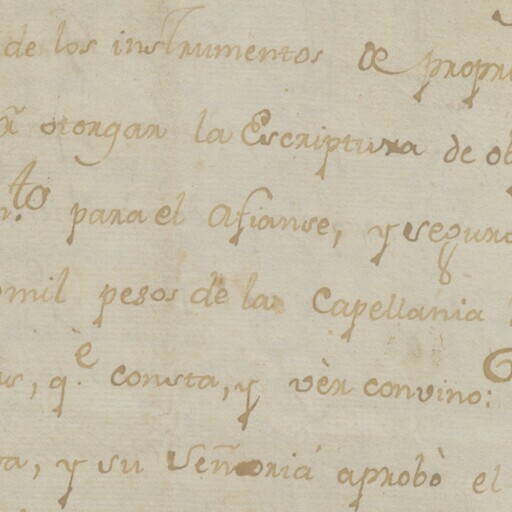 de los instrumentos de propri
rã otorgar la Escriptura de ob
n.to para el Afianse, y seguro
omil pesos de la Capellania
as, q.e consta, y vèn convino:
va, y su Señoria aprobò el